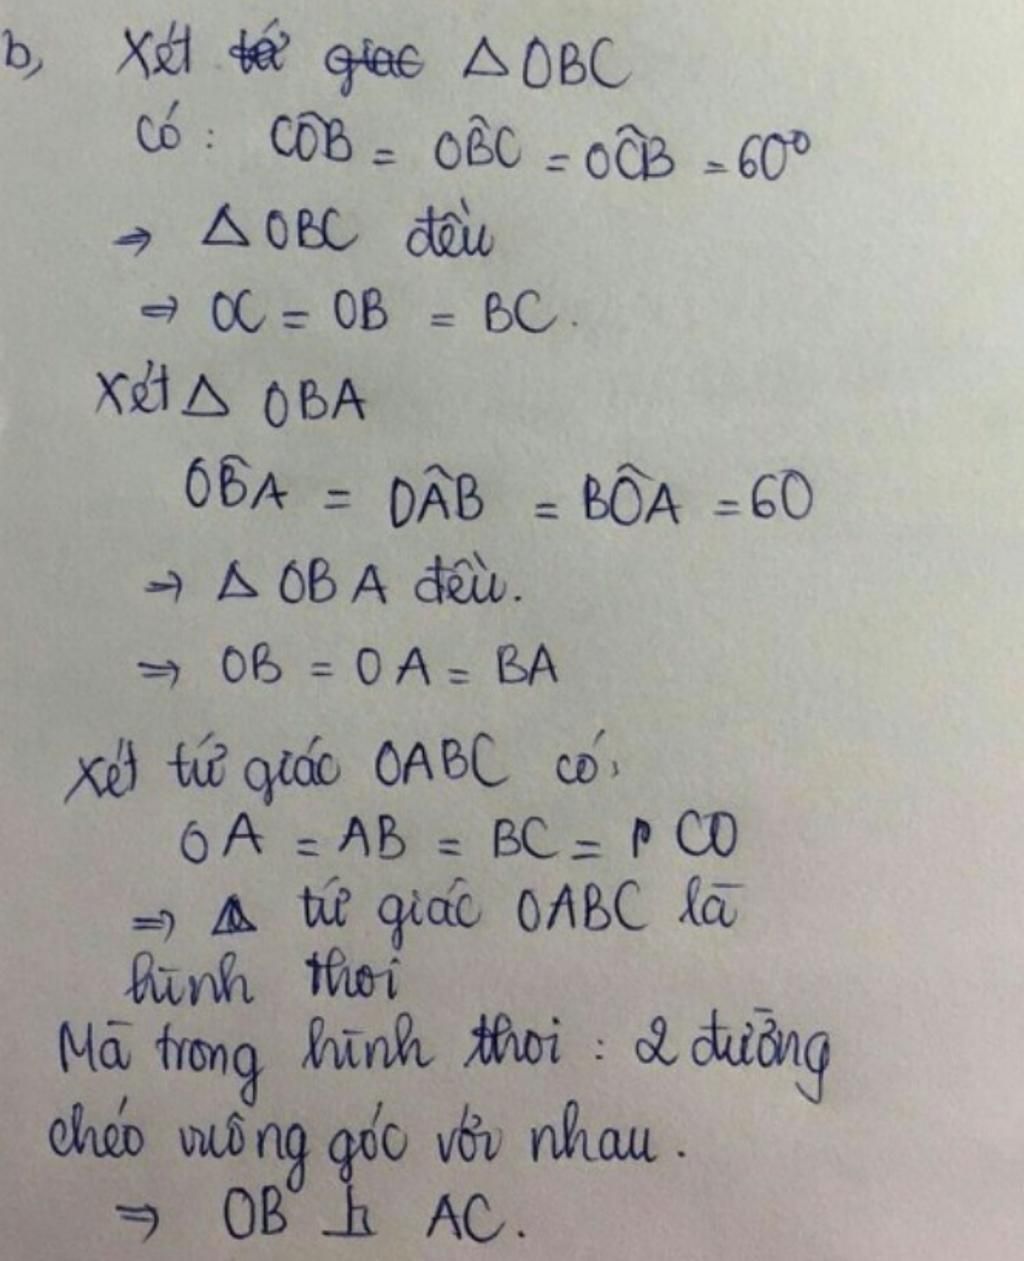 b, Xét tứ giác △OBC
Có: CÔB = OB̂C = OĈB = 60°
⇒ △OBC đều
⇒ OC = OB = BC.
Xét △ OBA
OB̂A = OÂB = BÔA = 60
⇒ △ OBA đều.
⇒ OB = OA = BA
Xét tứ giác OABC có,
OA = AB = BC = CO
⇒ tứ giác OABC là
hình thoi
Mà trong hình thoi : 2 đường
chéo vuông góc với nhau.
⇒ OB ⊥ AC.